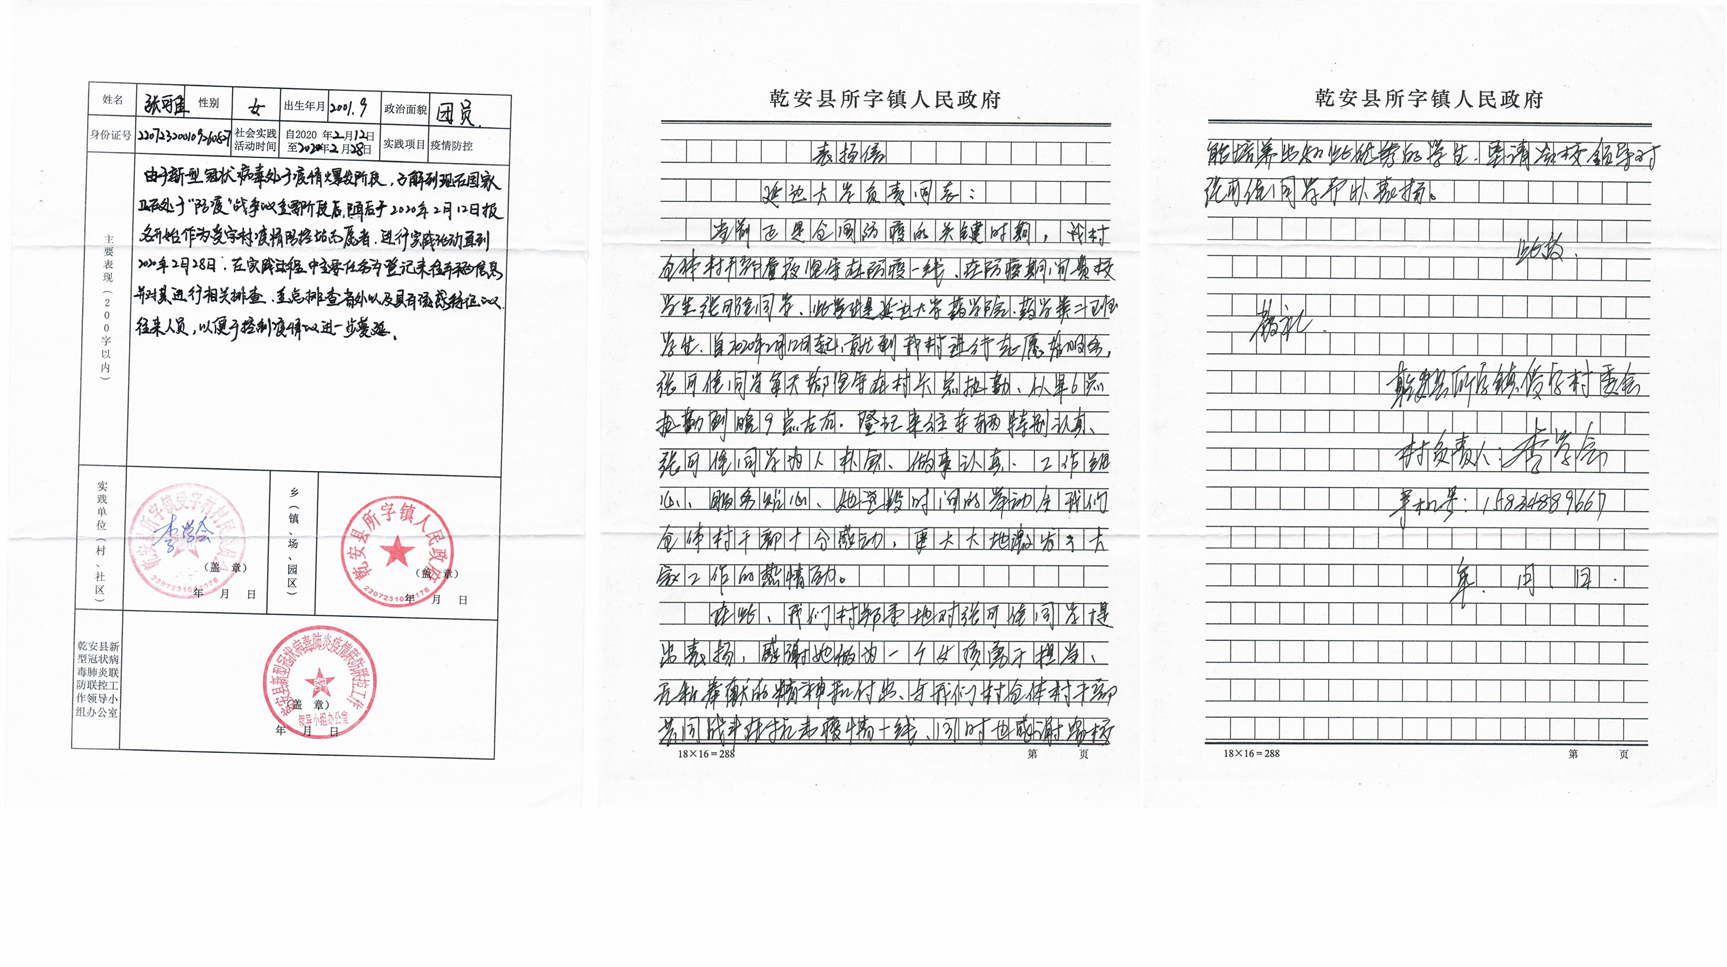 姓名 张可佳 性别 女 出生年月 2001.9 政治面貌 团员.
身份证号 社会实践活动时间 自2020年2月12日至2020年2月28日 实践项目 疫情防控
主要表现(200字以内)
由于新型冠状病毒处于疫情爆发阶段,了解到现在国家
正处于“防疫”战争的主要阶段后,随后于2020年2月12日报
名开始作为受字村疫情防控站志愿者.进行实践活动直到
2020年2月28日.在实践过程中主要任务为登记来往车辆信息
并对其进行相关排查.重点排查省外以及具有传感特征的
往来人员,以便于控制疫情的进一步蔓延。
实践单位(村、社区)
乾安县所字镇受字村村民委员会
李学会
(盖 章)
年 月 日
乡(镇、场、园区)
乾安县所字镇人民政府
(盖 章)
年 月 日
乾安县新型冠状病毒肺炎联防联控工作领导小组办公室
乾安县新型冠状病毒肺炎疫情联防联控工作
领导小组办公室
(盖 章)
年 月 日
乾安县所字镇人民政府
表扬信
延边大学负责同志:
当前正是全国防疫的关键时期,我村
全体村干部昼夜坚守在防疫一线、在防疫期间贵校
学生张可佳同学、此学生是延边大学药学院、药学
学生.自2020年2月12日起,就到我村进行志愿者服务,
张可佳同学每天都坚守在村卡点执勤、从早6点
执勤到晚9点左右.登记来往车辆特别认真、
张可佳同学为人朴实、做事认真、工作细
心、服务贴心、她这段时间的举动令我们
全体村干部十分感动,更大大地激发了大
家工作的热情动。
在此、我们村郑重地对张可佳同学提
出表扬,感谢她做为一个女孩勇于担当、
无私奉献的精神和付出、与我们村全体村干部
共同战斗在抗击疫情一线、同时也感谢贵校
18×16=288 第 页
乾安县所字镇人民政府
能培养出如此优秀的学生.恳请贵校领导对
张可佳同学予以表扬。
此致
敬礼.
乾安县所字镇受字村委会
村负责人:李学会
手机号:15834889667
年 月 日.
18×16=288 第 页